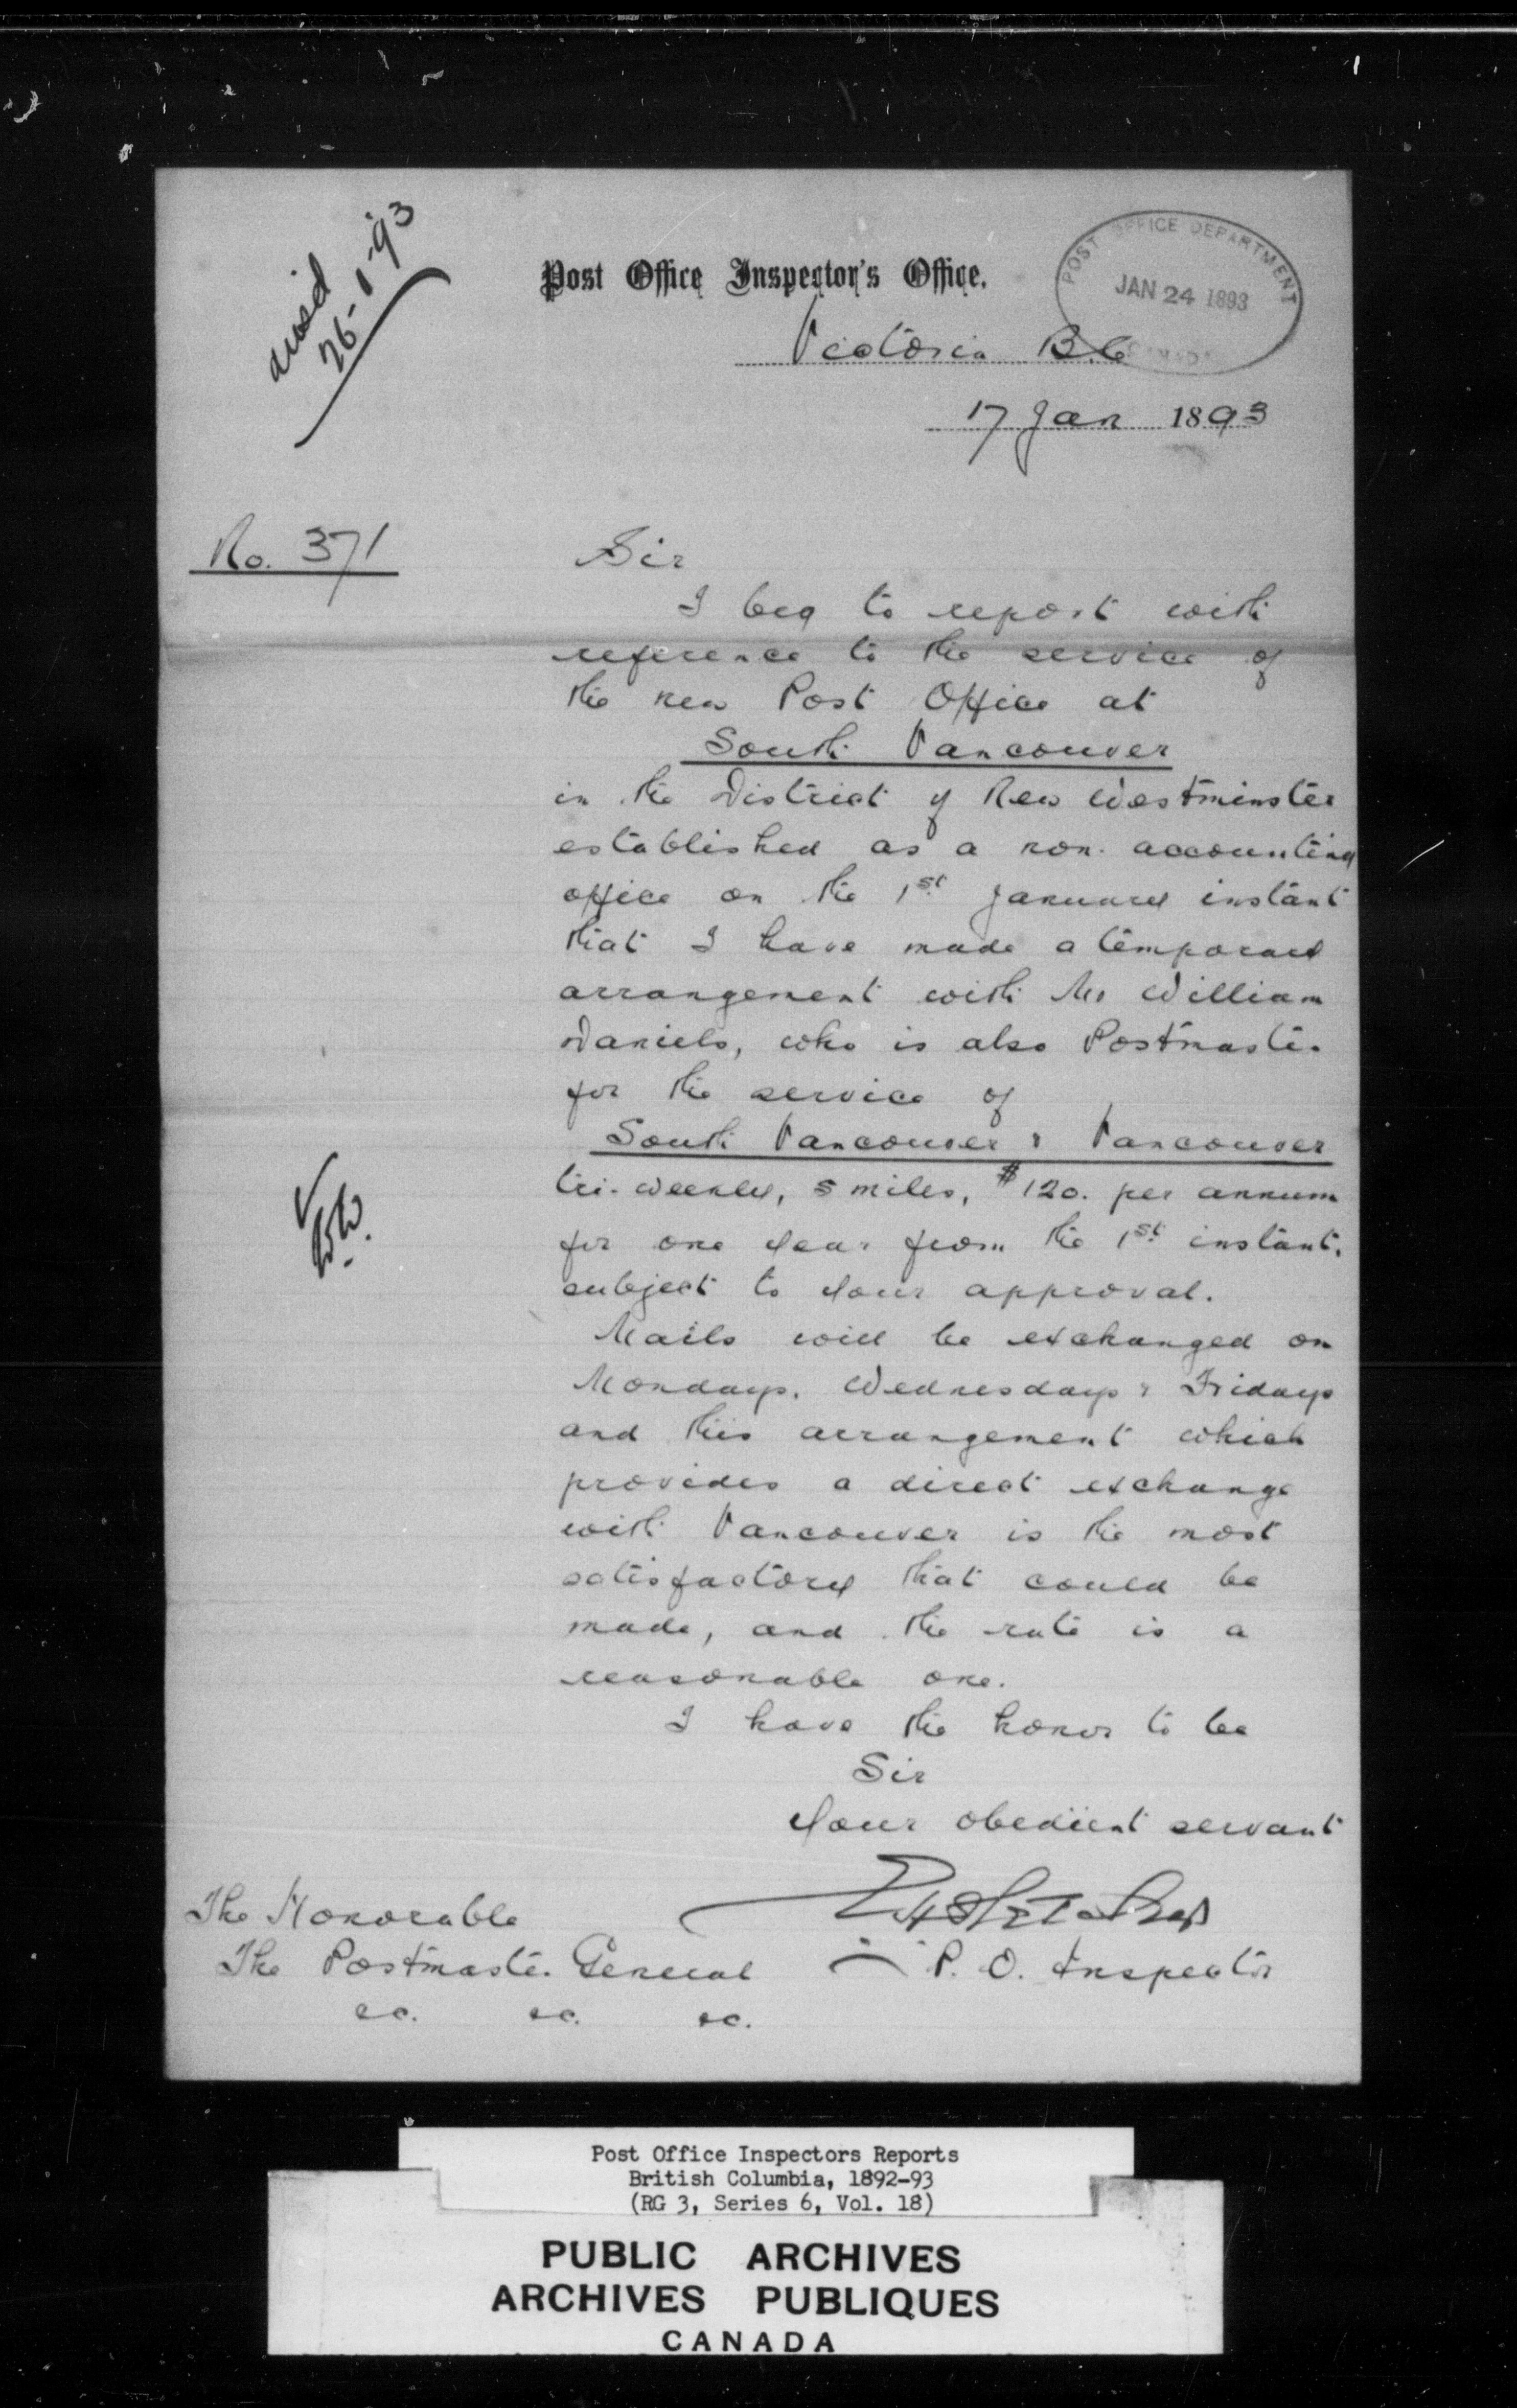 26-1-93
Post Office Inspector's Office.
POST OFFICE DEPARTMENT
JAN 24 1893
CANADA
Victoria B.C
17 Jan 1893
No. 371
Sir
I beg to report with
reference to the service of
the new Post Office at
South Vancouver
in the District of New Westminster
established as a non-accounting
office on the 1st January instant
that I have made a temporary
arrangement with Mr William
Daniels, who is also Postmaster
for the service of
South Vancouver & Vancouver
tri-weekly, 5 miles, $120. per annum
for one year from the 1st instant,
subject to your approval.
Mails will be exchanged on
Mondays, Wednesdays & Fridays
and this arrangement which
provides a direct exchange
with Vancouver is the most
satisfactory that could be
made, and the rate is a
reasonable one.
I have the honor to be
Sir
Your obedient servant
P. O. Inspector
The Honorable
The Postmaster General
&c. &c. &c.
Post Office Inspectors Reports
British Columbia, 1892-93
(RG 3, Series 6, Vol. 18)
PUBLIC ARCHIVES
ARCHIVES PUBLIQUES
CANADA